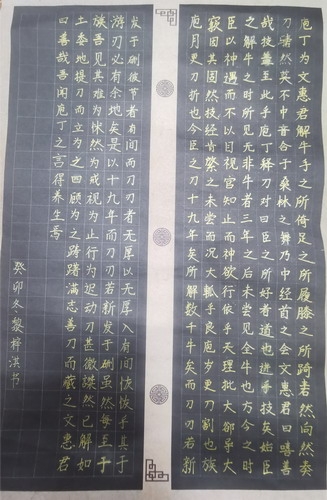 庖丁为文惠君解牛手之所倚足之所履膝之所踦砉然向然奏
刀騞然莫不中音合于桑林之舞乃中经首之会文惠君曰嘻善
哉技盖至此乎庖丁释刀对曰臣之所好者道也进乎技矣始臣
之解牛之时所见无非牛者三年之后未尝见全牛也方今之时
臣以神遇而不以目视官知止而神欲行依乎天理批大郤导大
窾因其固然技经肯綮之未尝而况大軱乎良庖岁更刀割也族
庖月更刀折也今臣之刀十九年矣所解数千牛矣而刀刃若新
发于硎彼节者有间而刀刃者无厚以无厚入有间恢恢乎其于
游刃必有余地矣是以十九年而刀刃若新发于硎虽然每至于
族吾见其难为怵然为戒视为止行为迟动刀甚微謋然已解如
土委地提刀而立为之四顾为之踌躇满志善刀而藏之文惠君
曰善哉吾闻庖丁之言得养生焉
癸卯冬黎梓洪书